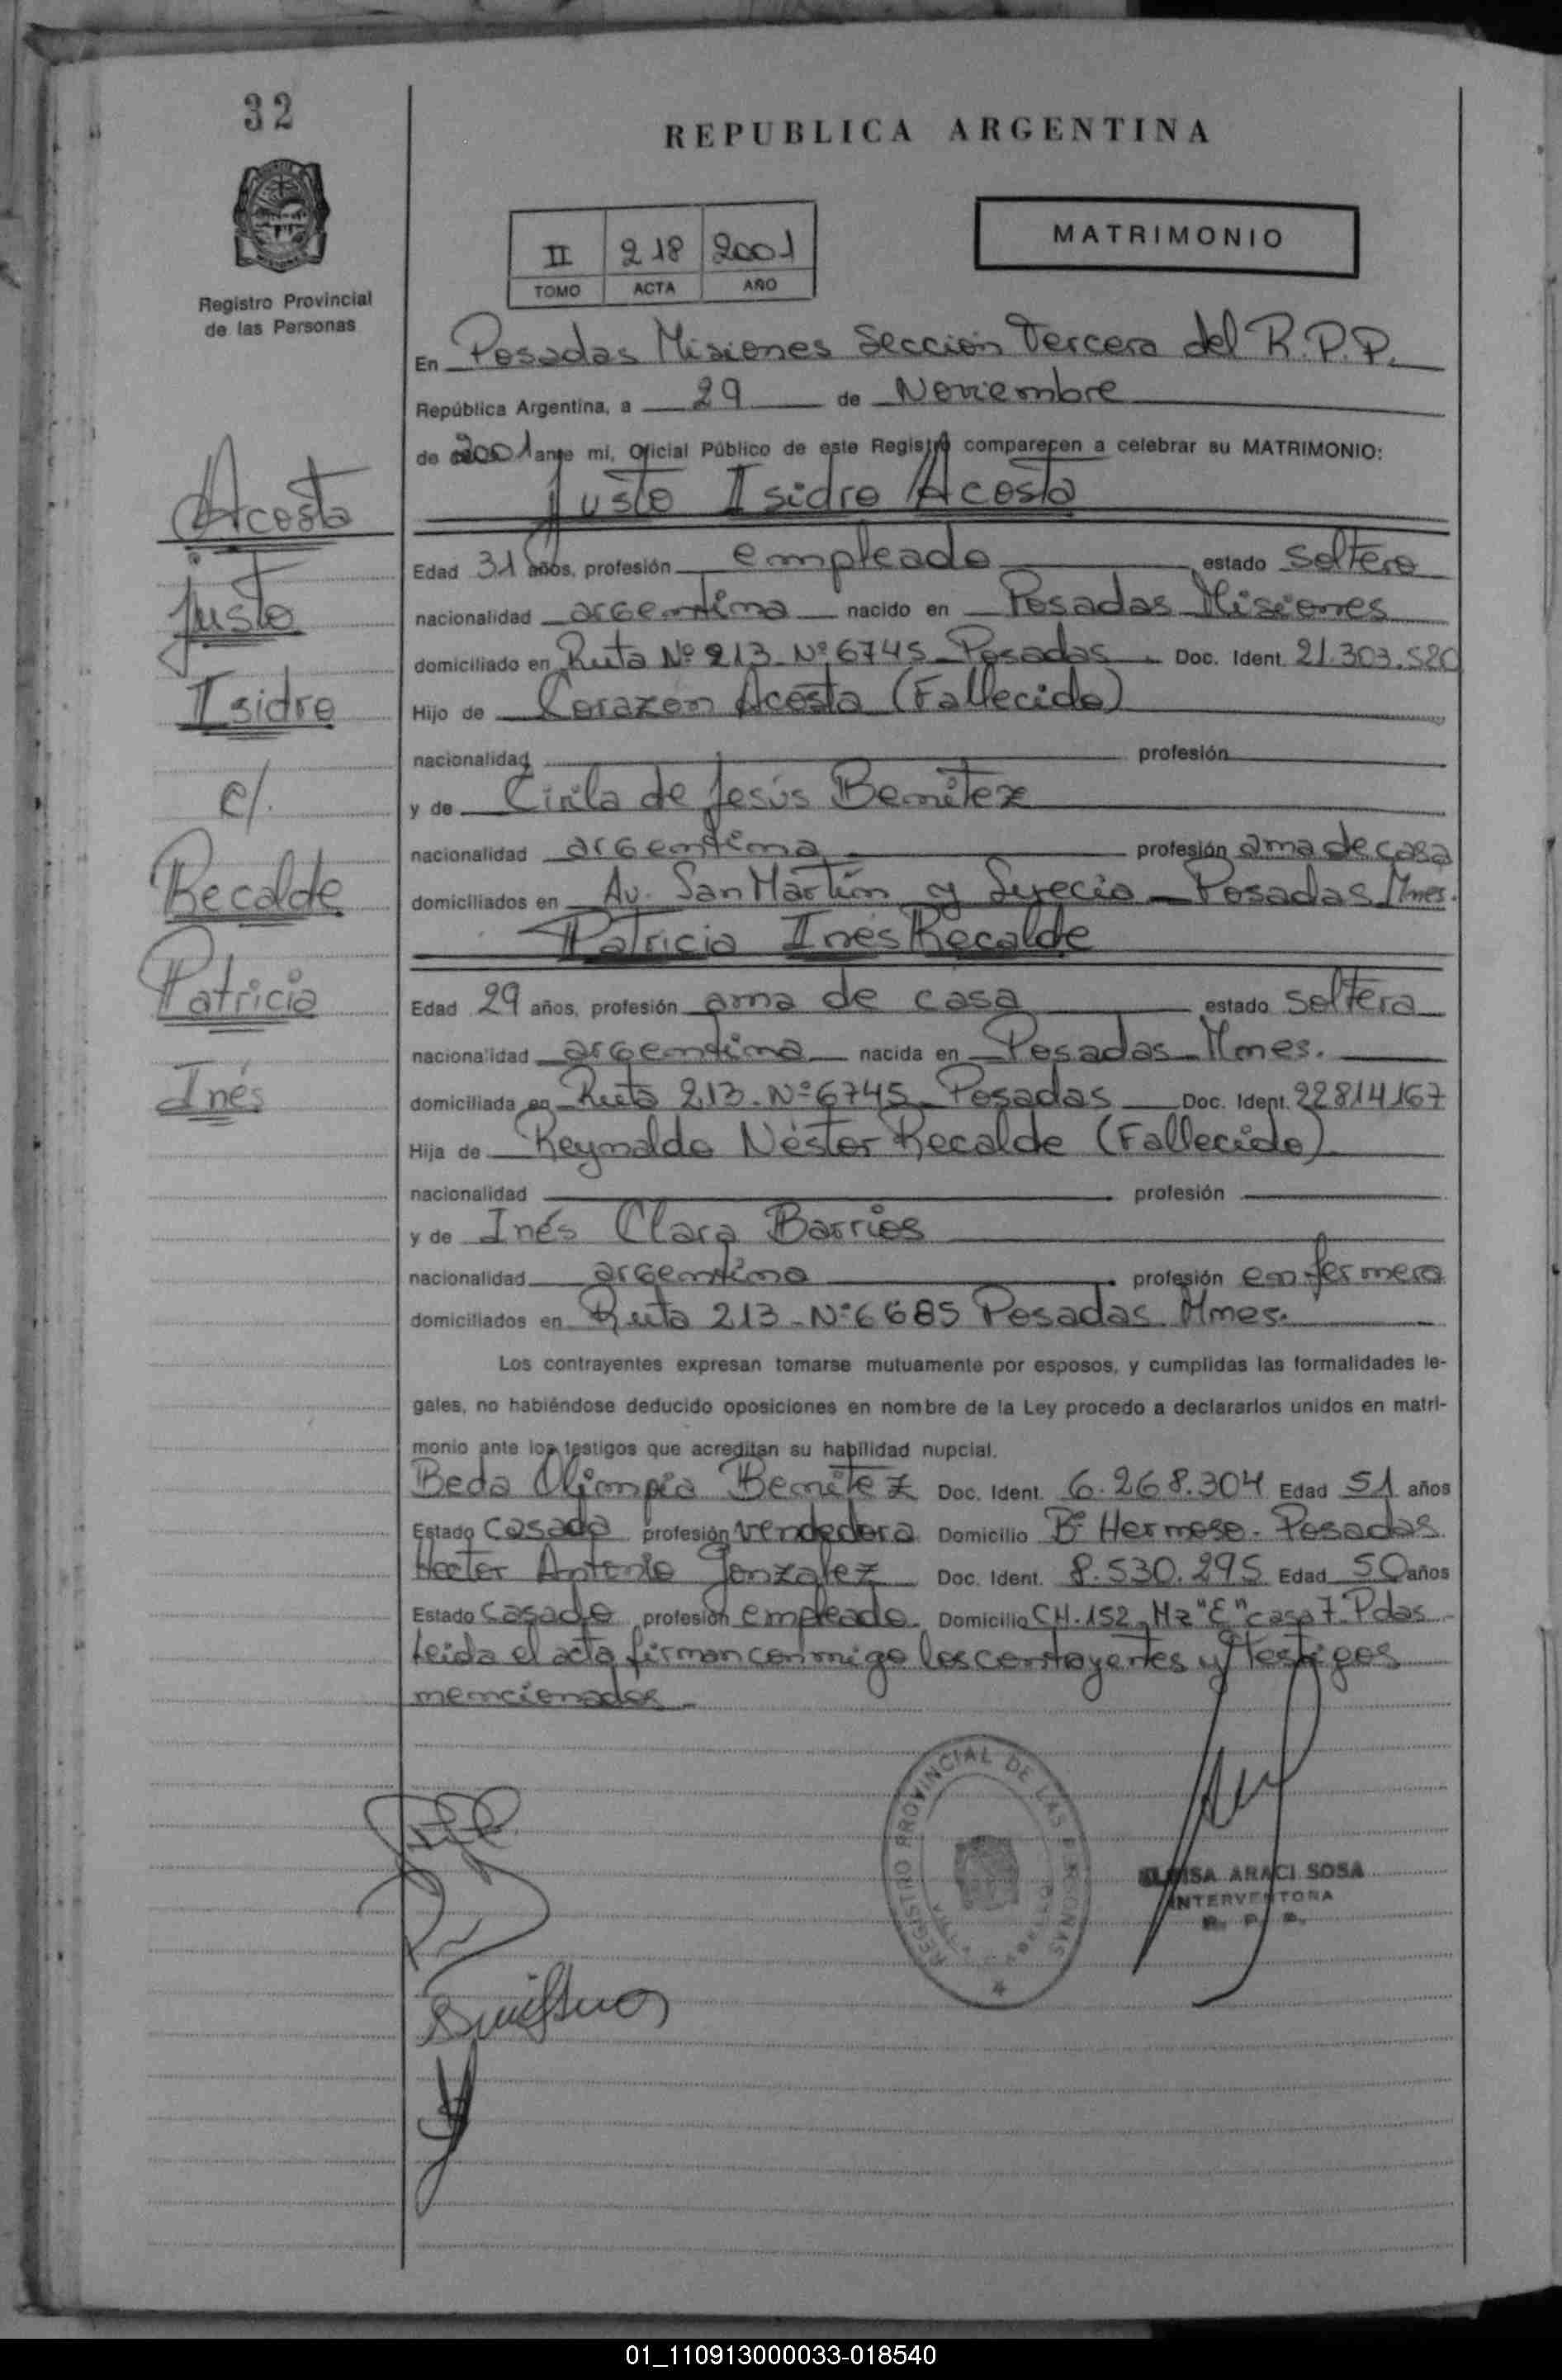 32
REPUBLICA ARGENTINA
II 218 2001
TOMO ACTA AÑO
MATRIMONIO
Registro Provincial
de las Personas
En Posadas Misiones Sección Tercera del R.P.P.
República Argentina, a 29 de Noviembre
de 2001 ante mí, Oficial Público de este Registro comparecen a celebrar su MATRIMONIO:
Justo Isidro Acosta
Acosta
Justo
Isidro
c/.
Recalde
Patricia
Inés
Edad 31 años, profesión empleado estado soltero
nacionalidad argentina nacido en Posadas Misiones
domiciliado en Ruta Nº 213 Nº 6745 Posadas Doc. Ident. 21.303.520
Hijo de Corazon Acosta (Fallecido)
nacionalidad profesión
y de Cirila de Jesús Benitez
nacionalidad argentina profesión ama de casa
domiciliados en Av. San Martín y Suecia Posadas Mnes.
Patricia Inés Recalde
Edad 29 años, profesión ama de casa estado soltera
nacionalidad argentina nacida en Posadas Mnes.
domiciliada en Ruta 213 - Nº 6745 Posadas Doc. Ident. 22814167
Hija de Reynaldo Néstor Recalde (Fallecido)
nacionalidad profesión
y de Inés Clara Barrios
nacionalidad argentina profesión enfermera
domiciliados en Ruta 213 - Nº 6685 Posadas Mnes.
Los contrayentes expresan tomarse mutuamente por esposos, y cumplidas las formalidades le-
gales, no habiéndose deducido oposiciones en nombre de la Ley procedo a declararlos unidos en matri-
monio ante los testigos que acreditan su habilidad nupcial.
Beda Olimpia Benitez Doc. Ident. 6.268.304 Edad 51 años
Estado casada profesión vendedora Domicilio Bº Hermoso - Posadas
Hector Antonio Gonzalez Doc. Ident. 8.530.295 Edad 50 años
Estado casado profesión empleado Domicilio CH. 152 Mz "E" casa 7 Pdas
Leida el acta firman conmigo los contrayentes y testigos
mencionados
REGISTRO PROVINCIAL DE LAS PERSONAS
ARACI SOSA
INTERVENTORA
R. P. P.
01_110913000033-018540